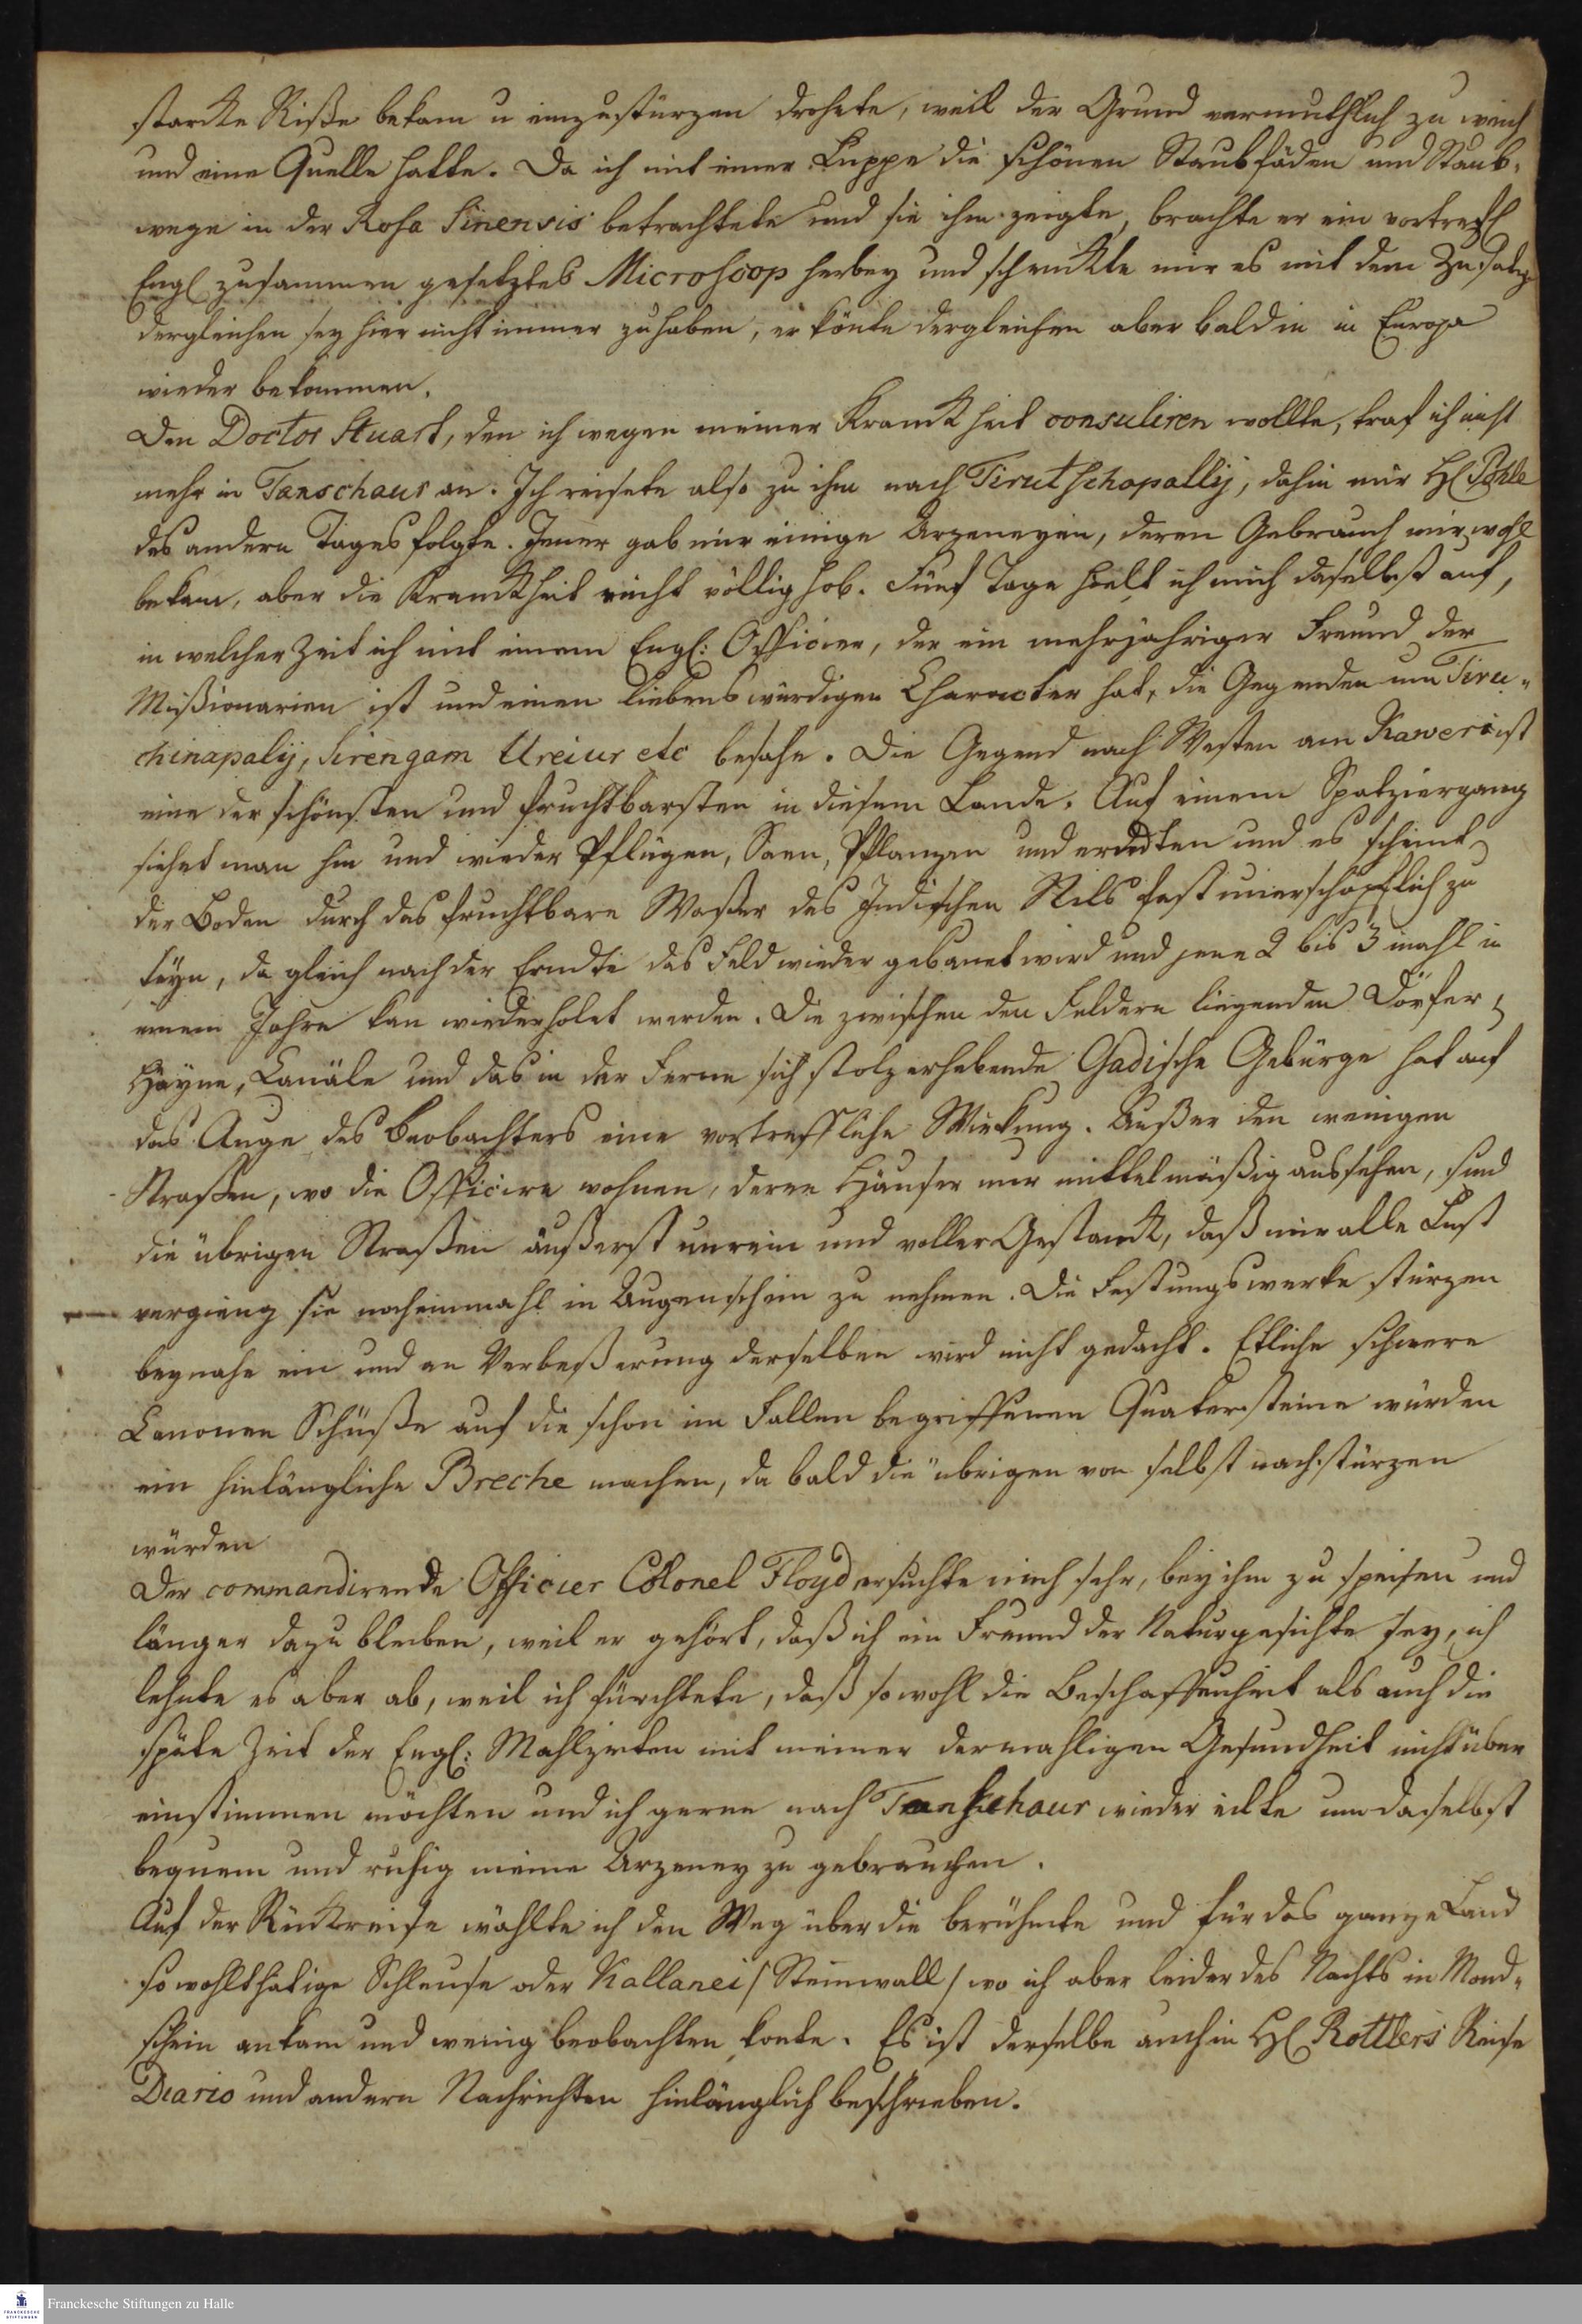 starcke Riße bekam u einzustürzen drohete, weil der Grund vermuthlich zu weich
und eine Quelle hatte. Da ich mit einer Luppe die schönen Staubfäden und Staub-
wege in der Rosa Sinensis betrachtete und sie ihm zeigte, brachte er ein vortrefl
Engl zusammen gesetztes Microscop herbey und schenckte mir es mit dem Zusatz
dergleichen sey hier nicht immer zu haben, er könte dergleichen aber bald in Europa
wieder bekommen.
Den Doctor Stuart, den ich wegen meiner Kranckheit consuliren wollte, traf ich nicht
mehr in Tanschaur an. Ich reisete also zu ihm nach Tirutschapallij, dahin mir H Pohle
des andern Tages folgte. Jener gab mir einige Arzeneyen, deren Gebrauch mir wohl
bekam, aber die Kranckheit nicht völlig hob. Fünf Tage hielt ich mich daselbst auf,
in welcher Zeit ich mit einem Engl: Officier, der ein mehrjähriger Freund der
Mißionarien ist und einen liebenswürdigen Character hat, die Gegenden um Tiru-
chinapalij, Sirengam Ureiur etc besahe. Die Gegend nach Westen am Kaweri ist
eine der schönsten und fruchtbarsten in diesem Lande. Auf einem Spatziergang
siehet man hin und wieder Pflügen, Säen, Pflanzen und erndten und es scheint
der Boden durch das fruchtbare Waßer des Indischen Nils fast unerschöpflich zu
seyn, da gleich nach der Erndte das Feld wieder gebauet wird und jene 2 bis 3 mahl in
einem Jahre kan wiederholet werden. Die zwischen den Feldern liegenden Dörfer,
Häyne, Canäle und das in der Ferne sich stolz erhebende Gadische Gebürge hat auf
das Auge des Beobachters eine vortreffliche Wirkung. Außer den wenigen
Straßen, wo die Officire wohnen, deren Häuser nur mittelmäßig aussehen, sind
die übrigen Straßen äußerst unrein und voller Gestanck, daß mir alle Lust
vergieng sie noch einmahl in Augenschein zu nehmen. Die Festungswerke stürzen
beynahe ein und an Verbeßerung derselben wird nicht gedacht. Etliche schwere
Canonen Schüße auf die schon im Fallen begriffenen Quatersteine würden
ein hinlängliche Breche machen, da bald die übrigen von selbst nachstürzen
würden
Der commandirende Officier Colonel Floyd ersuchte mich sehr, bey ihm zu speisen und
länger da zu bleiben, weil er gehört, daß ich ein Freund der Naturgesichte sey, ich
lehnte es aber ab, weil ich fürchtete, daß sowohl die Beschaffenheit als auch die
späte Zeit der Engl: Mahlzeiten mit meiner dermahligen Gesundheit nicht über
einstimmen möchten und ich gerne nach Tanschaur wieder eilte um daselbst
bequem und ruhig meine Arzeney zu gebrauchen.
Auf der Rückreise wählte ich den Weg über die berühmte und für das ganze Land
so wohlthätige Schleuse oder Kallanei / Steinwall / wo ich aber leider des Nachts in Mond-
schein ankam und wenig beobachten konte. Es ist derselbe auch in H Rottlers Reise
Diario und andern Nachrichten hinlänglich beschrieben.
Franckesche Stiftungen zu Halle